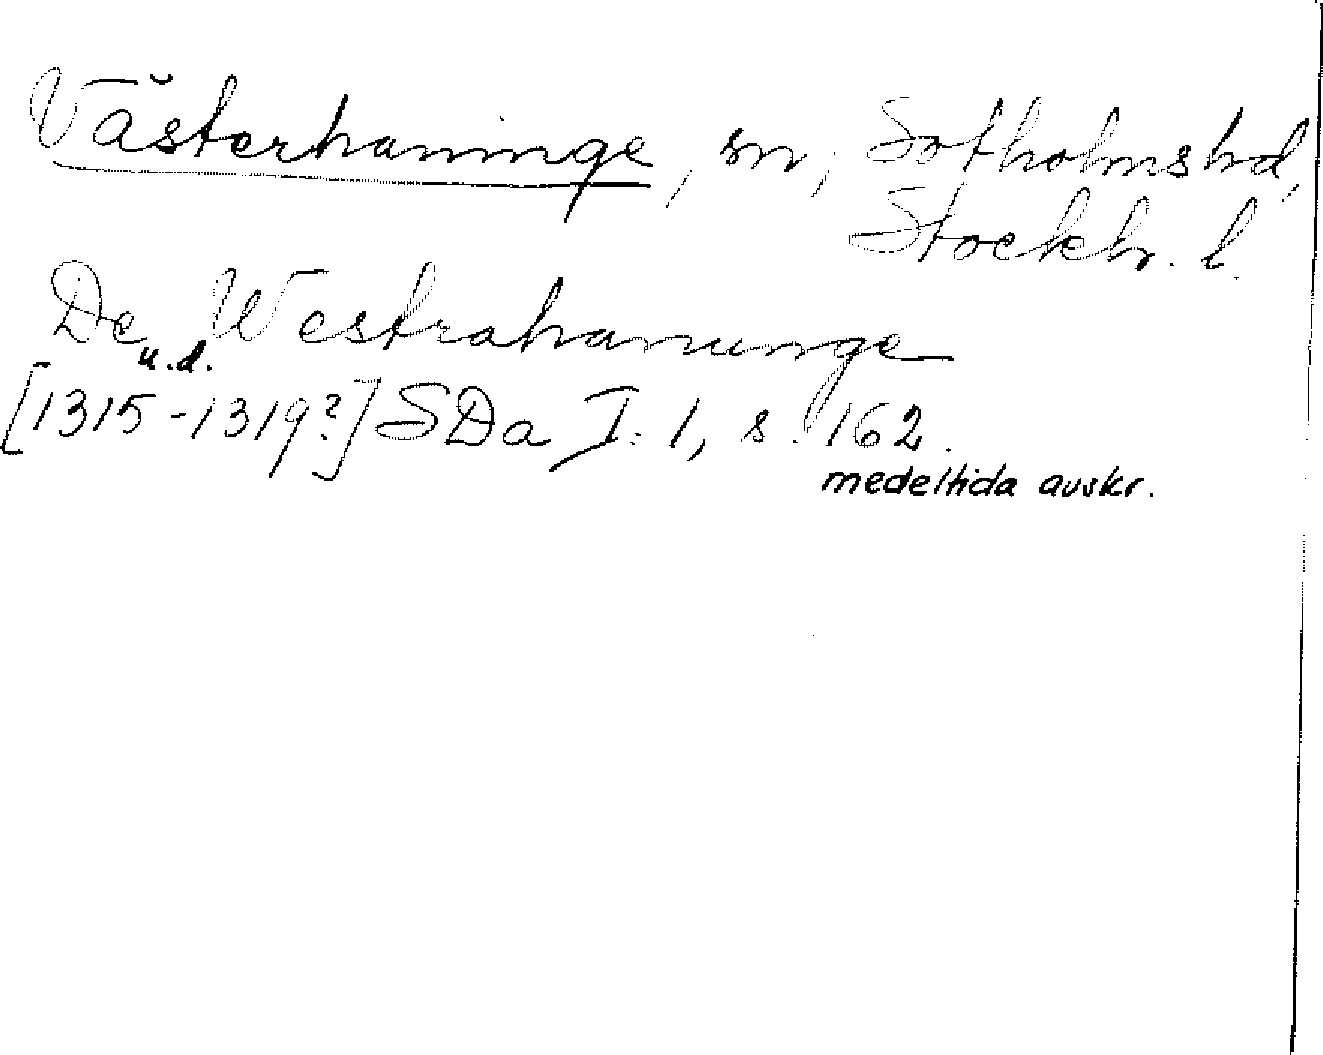 Västerhaninge, sn, Sotholms hd,
Stockh. l.
De Westrahanunge
u.d.
[1315-1319?] SDa I: 1, s. 162.
medeltida avskr.